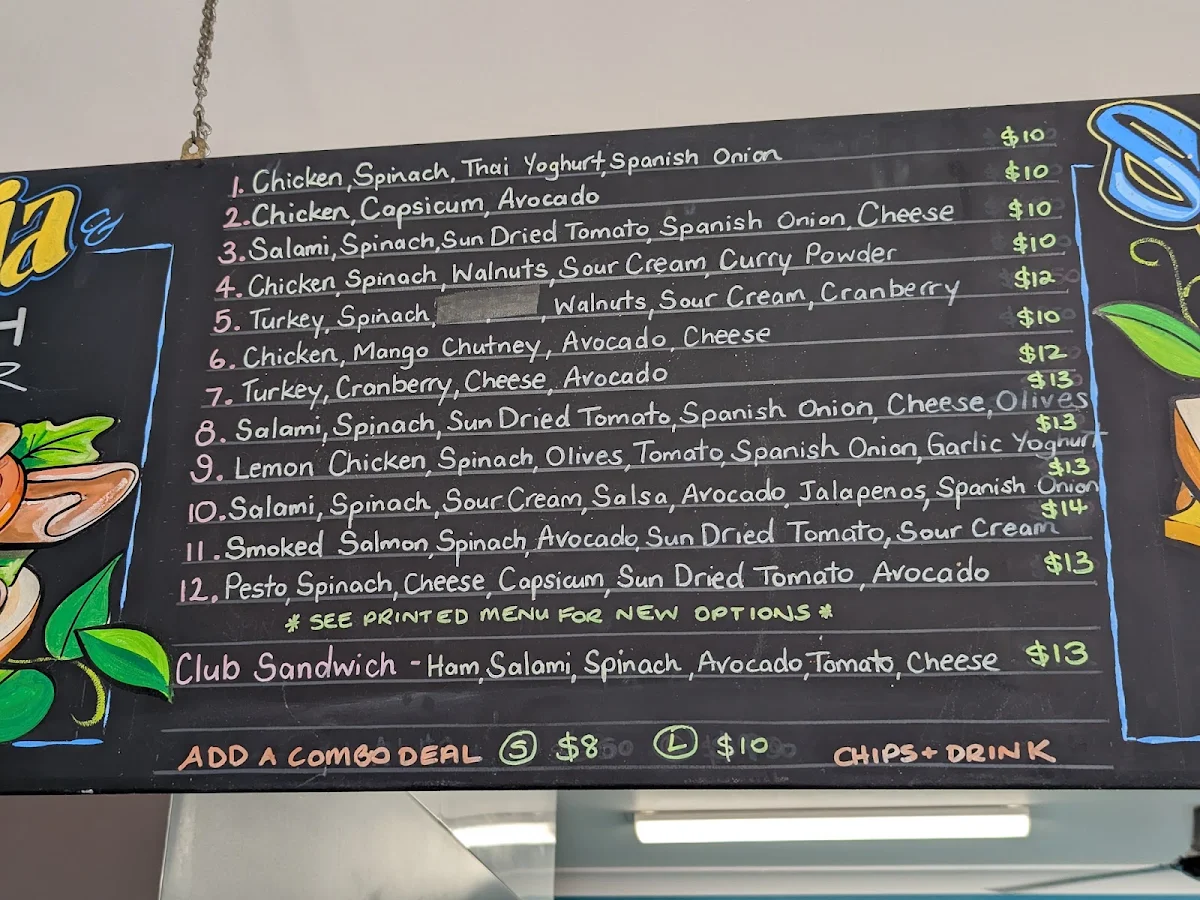 ia &
H
R
S
1. Chicken, Spinach, Thai Yoghurt, Spanish Onion $10
2. Chicken, Capsicum, Avocado $10
3. Salami, Spinach, Sun Dried Tomato, Spanish Onion, Cheese $10
4. Chicken Spinach, Walnuts, Sour Cream, Curry Powder $10
5. Turkey, Spinach, , Walnuts, Sour Cream, Cranberry $12
6. Chicken, Mango Chutney, Avocado, Cheese $10
7. Turkey, Cranberry, Cheese, Avocado $12
8. Salami, Spinach, Sun Dried Tomato, Spanish Onion, Cheese, Olives $13
9. Lemon Chicken, Spinach, Olives, Tomato, Spanish Onion, Garlic Yoghurt $13
10. Salami, Spinach, Sour Cream, Salsa, Avocado, Jalapenos, Spanish Onion $13
11. Smoked Salmon, Spinach, Avocado, Sun Dried Tomato, Sour Cream $14
12. Pesto, Spinach, Cheese, Capsicum, Sun Dried Tomato, Avocado $13
* SEE PRINTED MENU FOR NEW OPTIONS *
Club Sandwich - Ham, Salami, Spinach, Avocado, Tomato, Cheese $13
ADD A COMBO DEAL S $8 L $10 CHIPS + DRINK